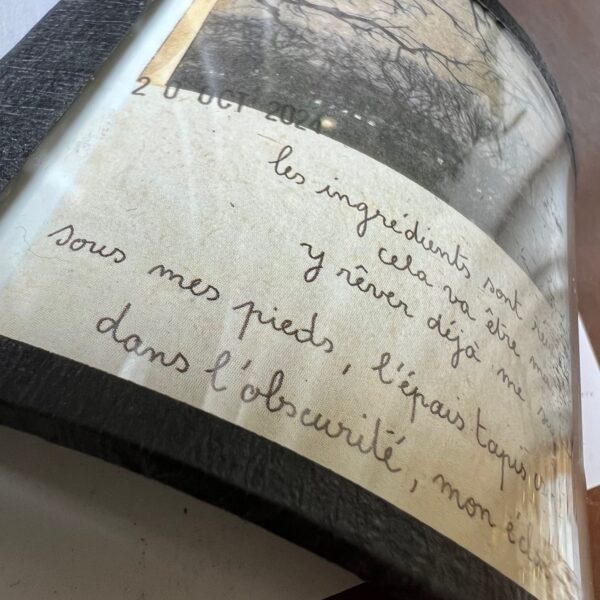 20 OCT 2024
les ingrédients sont
cela va être
y rêver déjà me
sous mes pieds, l'épais tapis
dans l'obscurité, mon